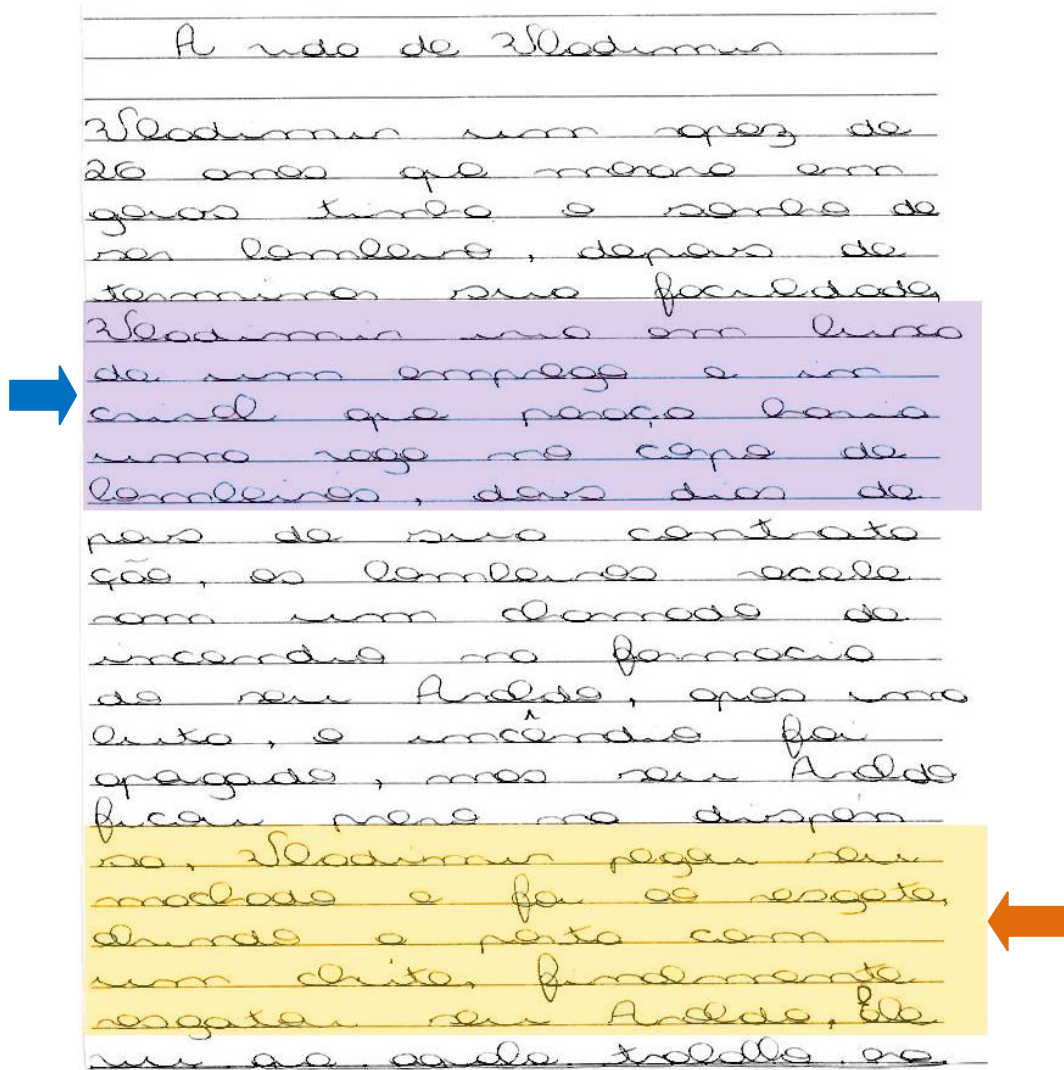 A vida de Wladimir
Wladimir um rapaz de
26 anos que morava em
goias tinha o sonho de
ser bombeiro, depois de
terminar sua faculdade,
Wladimir ia em busca
de um emprego e in
crivel que pareça havia
uma vaga no copo de
bombeiros, dois dias de
pois de sua contrata
ção, os bombeiros recebe
ram um chamado de
incendio na farmacia
do seu Aroldo, apos uma
luta, o incêndio foi
apagado, mas seu Aroldo
ficou preso na dispen
sa, Wladimir pegou seu
machado e foi ao resgate,
abrindo a porta com
um chute, finalmente
resgatou seu Aroldo, Ele